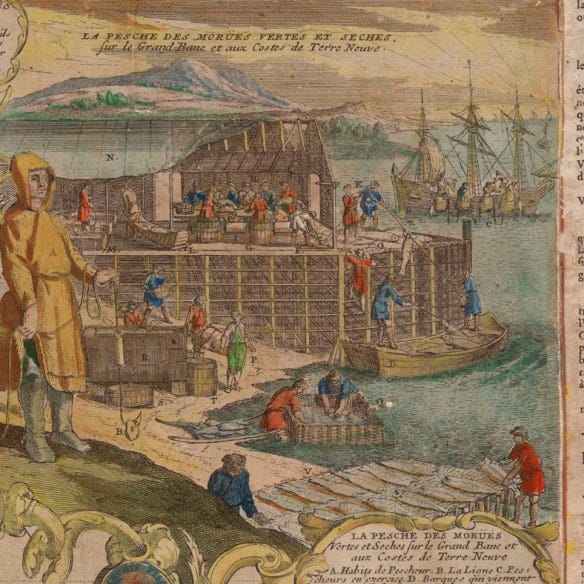 LA PESCHE DES MORUES VERTES ET SECHES,
sur le Grand Banc et aux Costes de Terre Neuve.
N.
E
C
A
M
L
G
F
O
D
R
P
B
S
T.
Q
V
LA PESCHE DES MORUES
Vertes et Seches sur le Grand Banc et
aux Costés de Terre Neuve
A. Habits de Pescheur. B. La Ligne C. Pes-
cheurs en exercice D. Barques qui viennent